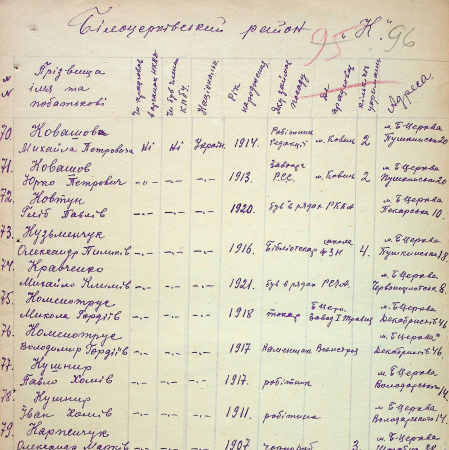 Білоцерківський район "К". 95 96
№№ Прізвища імя та побатькові Чи працював в органах НКВС Чи був член КПбУ Національн. Рік народження Яку займає посаду Де працював Адреса
70. Ковашова
Михайла Петровича Ні Ні Україн. 1914. Робітник м. Ковель 2 м. Б-Церква Пушкинська
71. Ковашов
Юрко Петрович -"- -"- -"- 1913. м. Ковель 2 м. Б-Церква Пушкинська
72. Ковтун
Гліб Павлів -"- -"- -"- 1920. був в рядах РККА м. Б-Церква Пекарська 10.
73. Кузьменчук
Олександр Пилипів -"- -"- -"- 1916. Бібліотекар школа ФЗН 4. м. Б-Церква Пушкинська 18.
74. Кравченко
Михайло Климів -"- -"- -"- 1921. був в рядах РСЧА. м. Б-Церква 8.
75. Коменотрус
Микола Гордіїв -"- -"- -"- 1918 токар Б-Церк. Завод І Травня м. Б-Церква Декабристів 46
76. Коменотрус
Володимир Гордіїв -"- -"- -"- 1917 Каменщик м. Б-Церква Декабристів 46.
77. Кушнир
Павло Хомів -"- -"- -"- 1917. робітник м. Б-Церква Володарського 14.
78. Кушнир
Іван Хомів -"- -"- -"- 1911. робітник м. Б-Церква Володарського 14.
79. Каржичук
Олександр Марків -"- -"- -"- 1907 3. м. Б-Церква